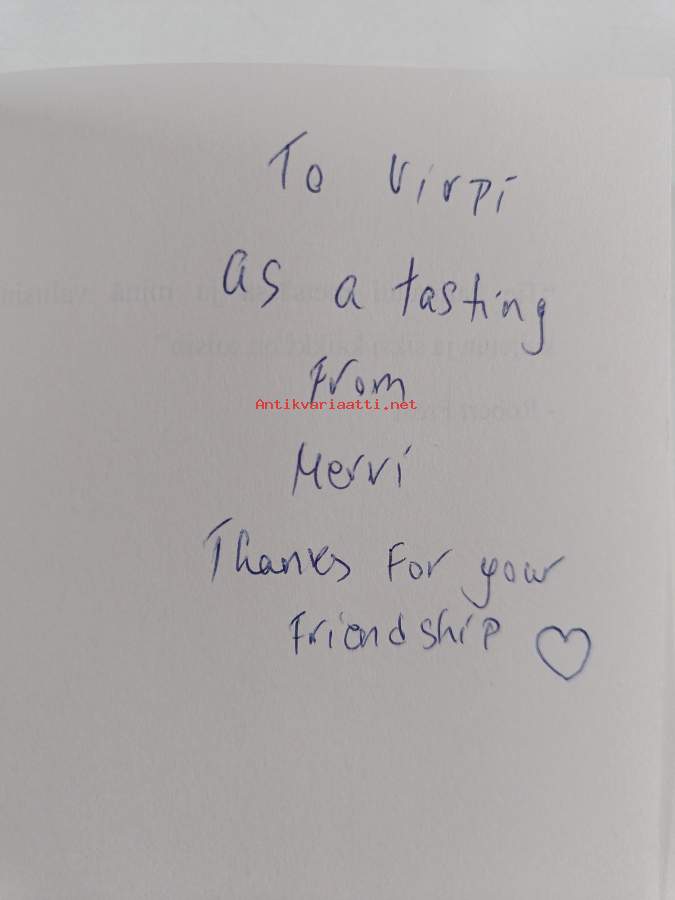 To Virpi
as a tasting
From
Antikvariaatti.net
Mervi
Thanks For your
Friendship ♡